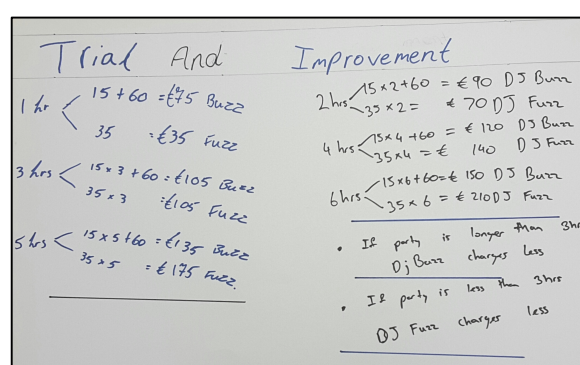 Trial And Improvement
1 hr < 15 + 60 = €75 Buzz
35 = €35 Fuzz
3 hrs < 15 x 3 + 60 = €105 Buzz
35 x 3 = €105 Fuzz
5 hrs < 15 x 5 + 60 = €135 Buzz
35 x 5 = €175 Fuzz.
2 hrs < 15 x 2 + 60 = €90 DJ Buzz
35 x 2 = €70 DJ Fuzz
4 hrs < 15 x 4 + 60 = €120 DJ Buzz
35 x 4 = € 140 DJ Fuzz
6 hrs < 15 x 6 + 60 = € 150 DJ Buzz
35 x 6 = € 210 DJ Fuzz
• If party is longer than 3hr
Dj Buzz charges less
• If party is less than 3hrs
DJ Fuzz charges less